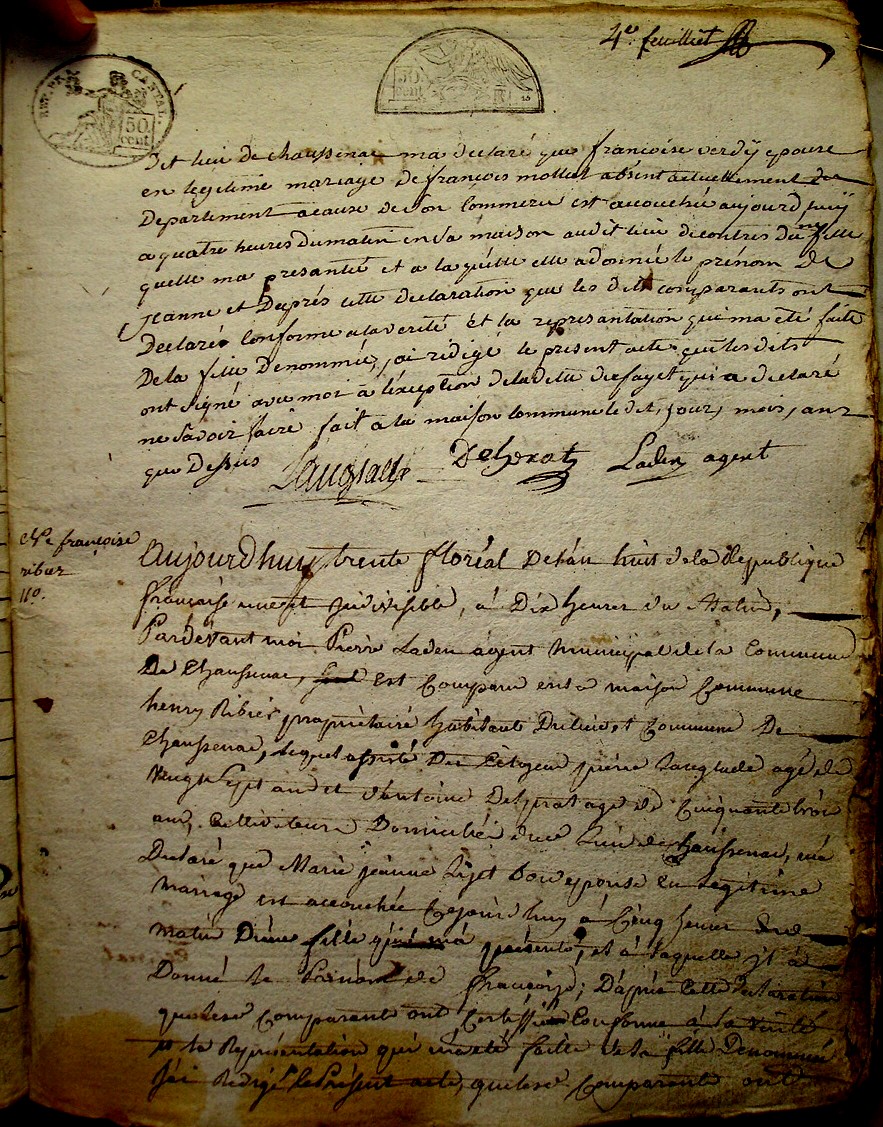 4e. feuillet
REP. FRA. CANTAL
50 cent
50 cent
dit lieu de chaussenac ma declaré que francoise verdy epouse
en legitime mariage de francois mollat absent actuellement du
Departement acause de son Commerce est acouchée aujourd huy
a quatre heures du matin en sa maison audit lieu decontres dune fille
quelle ma presantée et a la quelle elle a donné le prénom de
Jeanne et Daprés cette declaration que les dits comparants ont
Declaré Conforme a la verité et la represantation qui ma été faite
De la fille Denommée, jai rédigé le present acte que les dits
ont signé avec moi a l'exception de la dite defayet qui a declaré
ne savoir faire fait a la maison Commune le dit, jour, mois, ans
que Dessus Lauglade Delzrat Laden agent
Nce francoise
ribier
11o.
Aujourdhuy trente floréal de l'an huit de la Republique
francaise une et indivisible, à Dix heures du Matin,
Pardevant moi Pierre Laden agent municipal de la Commune
De Chaussenac, est Comparu en la maison Commune
henry Ribier propriétaire habitant du lieu et Commune De
Chaussenac, lequel assisté Des Citoyens pierre Lauglade agé de
Vingt Sept ans et Antoine Delzrat agé de Cinquante trois
ans, Cultivateurs Domiciliés du lieu de Chaussenac, m'a
Declaré que Marie jeanne Lizet Son epouse En Legitime
Mariage est accouchée Cejourdhuy à Cinq heures du
matin D'une fille qu'il m'a présenté, et à laquelle il a
Donné le Prénom de françoise; D'après Cette declaration
que les Comparants ont Certiffié Conforme à la verité
et la Représentation qui m'a été faitte de la fille Denommée
J'ai Redigé le Présent acte, que les Comparants ont